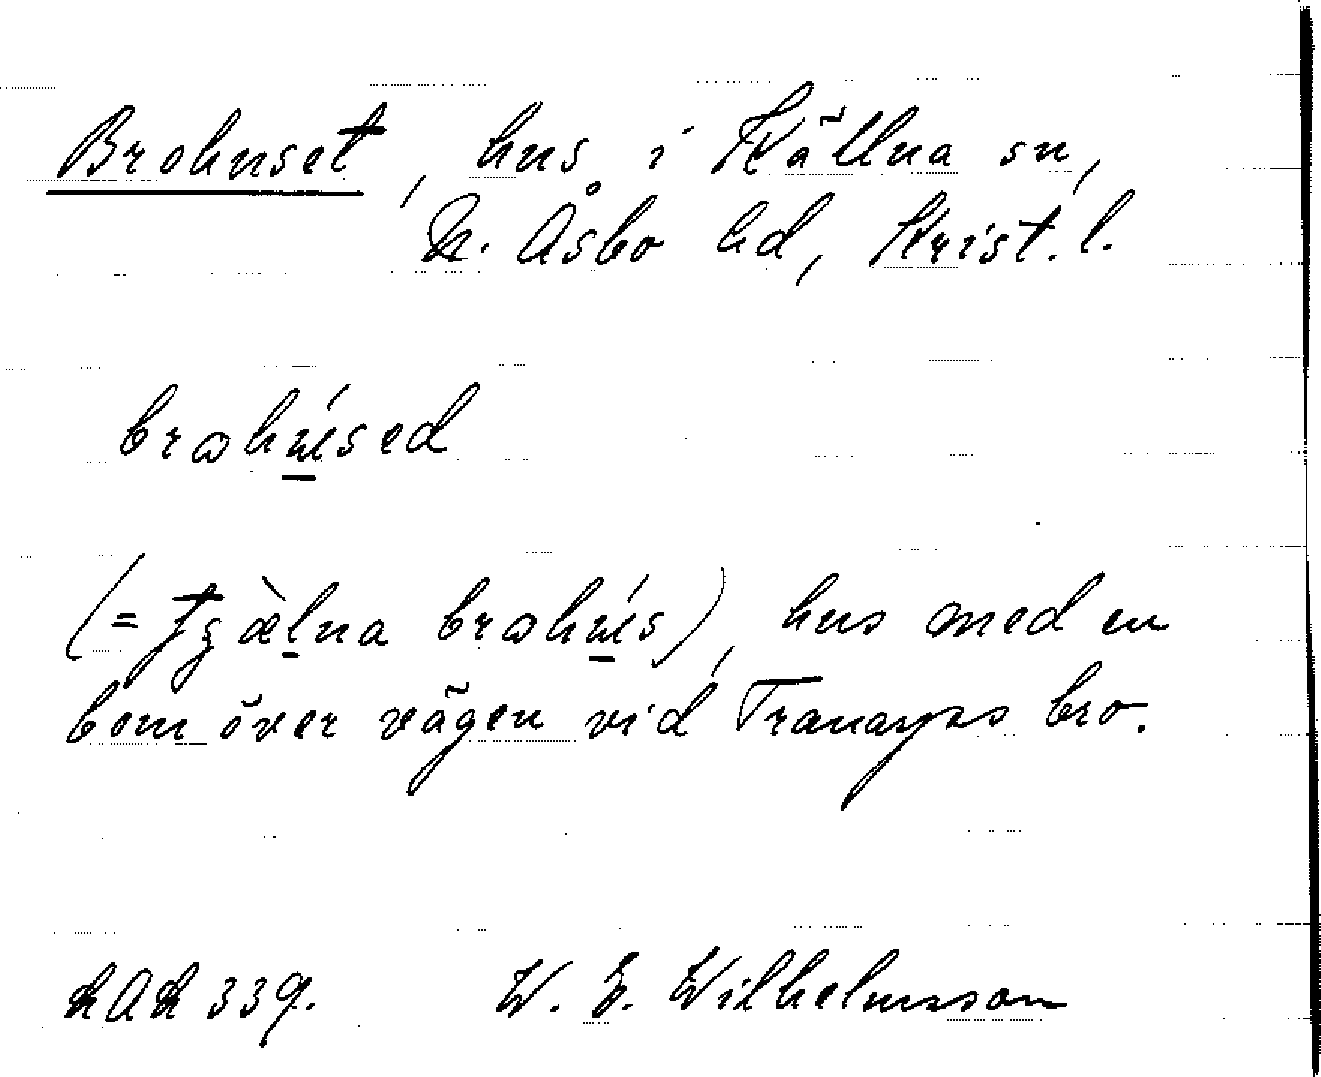 Brohuset, hus i Källna sn,
N. Åsbo hd, Krist. l.
brɷhu̲̍sed
(= tʒæ̀l̲na brɷhu̲̍s), hus med en
bom över vägen vid Tranarps bro.
W. E. Wilhelmsson